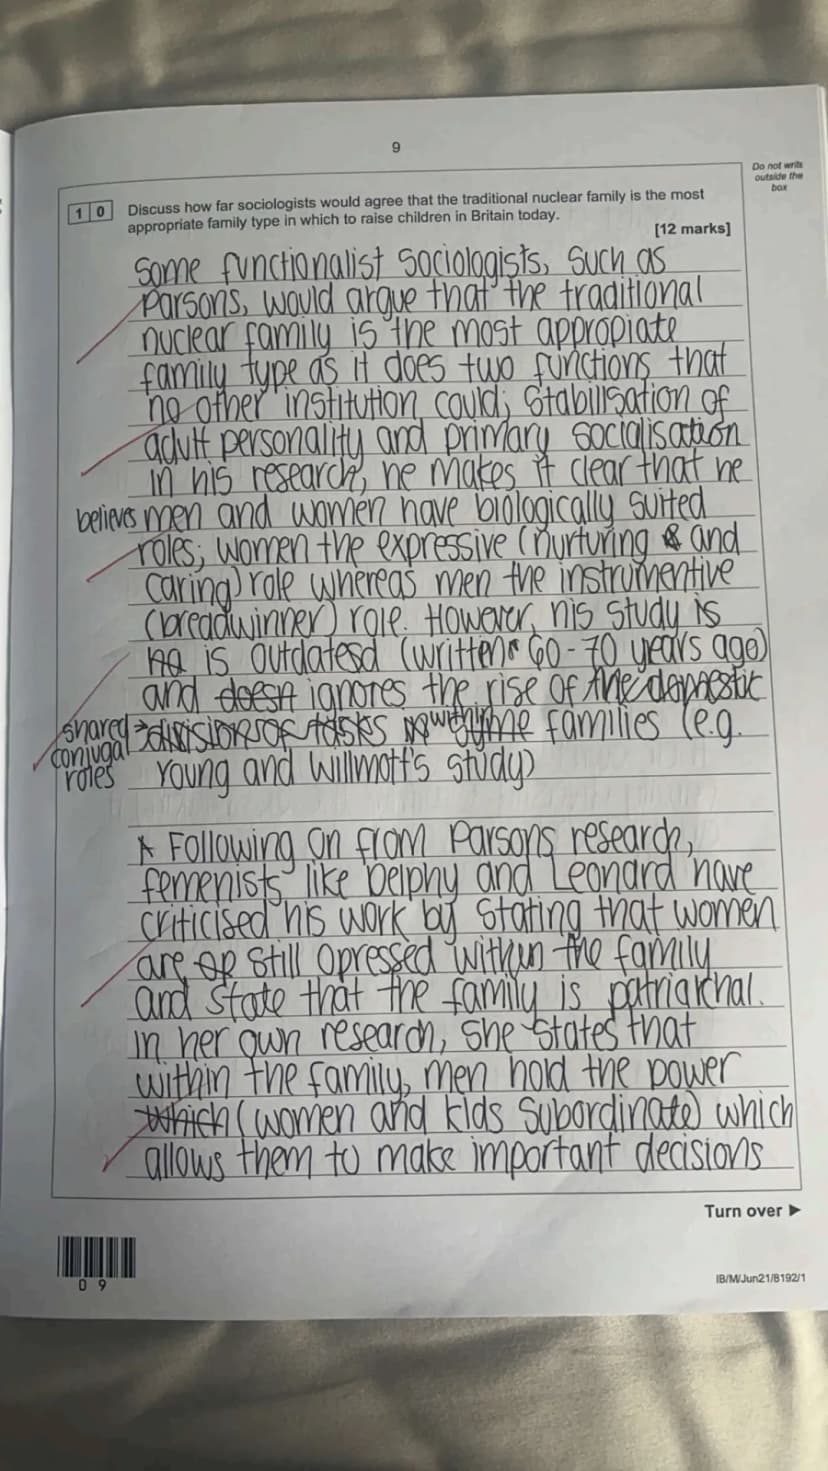 9
Do not write
outside the
box
1 0 Discuss how far sociologists would agree that the traditional nuclear family is the most
appropriate family type in which to raise children in Britain today.
[12 marks]
Some functionalist sociologists, such as
Parsons, would argue that the traditional
nuclear family is the most appropiate
family type as it does two functions that
no other institution could; stabilisation of
adult personality and primary socialisation
in his research, he makes it clear that he
believes men and women have biologically suited
roles; women the expressive (nurturing & and
caring) role whereas men the instrumentive
(breadwinner) role. However, his study is
is outdatesd (written 60-70 years ago)
and doesn't ignores the rise of the domestic
shared conjugal roles
divisions of tasks within the families (e.g.
Young and Willmott's study)
A Following on from Parsons research,
femenists like Delphy and Leonard have
criticised his work by stating that women
are op still opressed within the family
and state that the family is patriarchal.
In her own research, she states that
within the family, men hold the power
which (women and kids subordinate) which
allows them to make important decisions
Turn over ►
0 9
IB/M/Jun21/8192/1